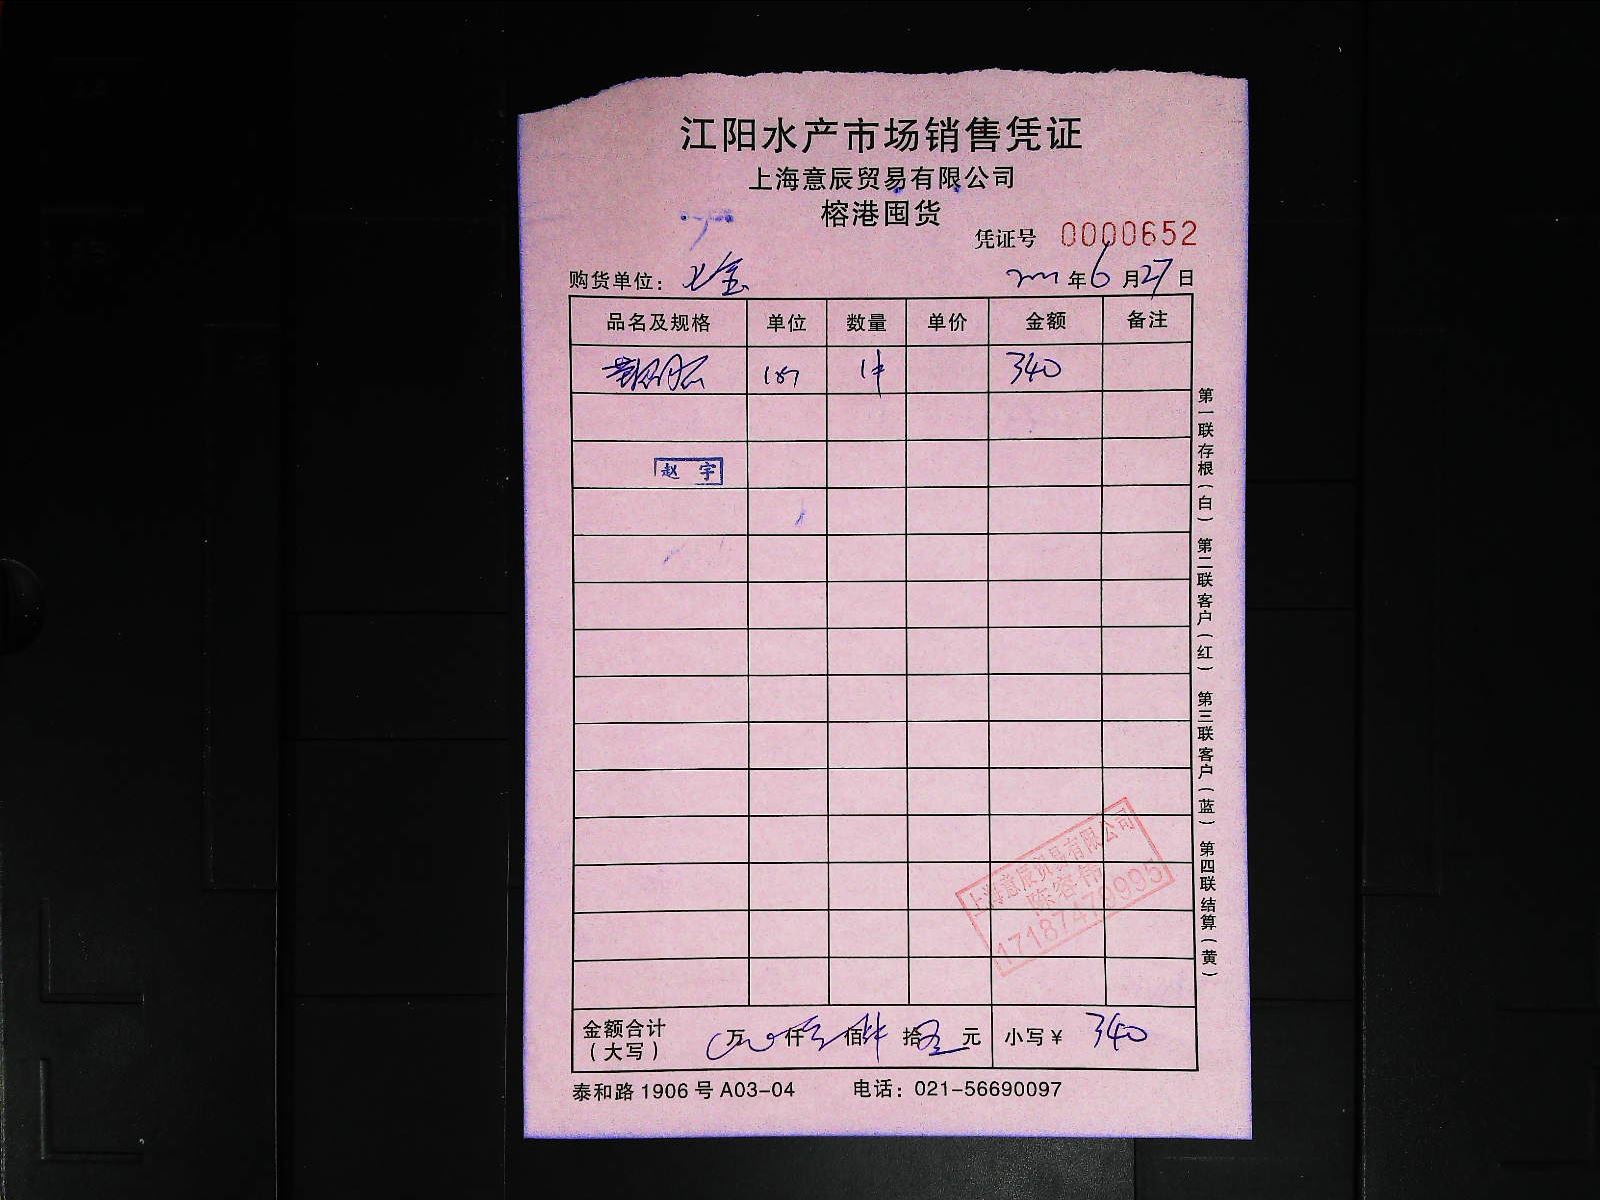 江阳水产市场销售凭证
上海意辰贸易有限公司
榕港囤货
凭证号 0000652
购货单位：
年6月27日
品名及规格 单位 数量 单价 金额 备注
1件 340
赵宇
上海意辰贸易有限公司
17187479995
金额合计（大写） 万 仟 佰 拾 元 小写¥ 340
泰和路1906号A03-04 电话：021-56690097
第一联存根（白） 第二联客户（红） 第三联客户（蓝） 第四联结算（黄）